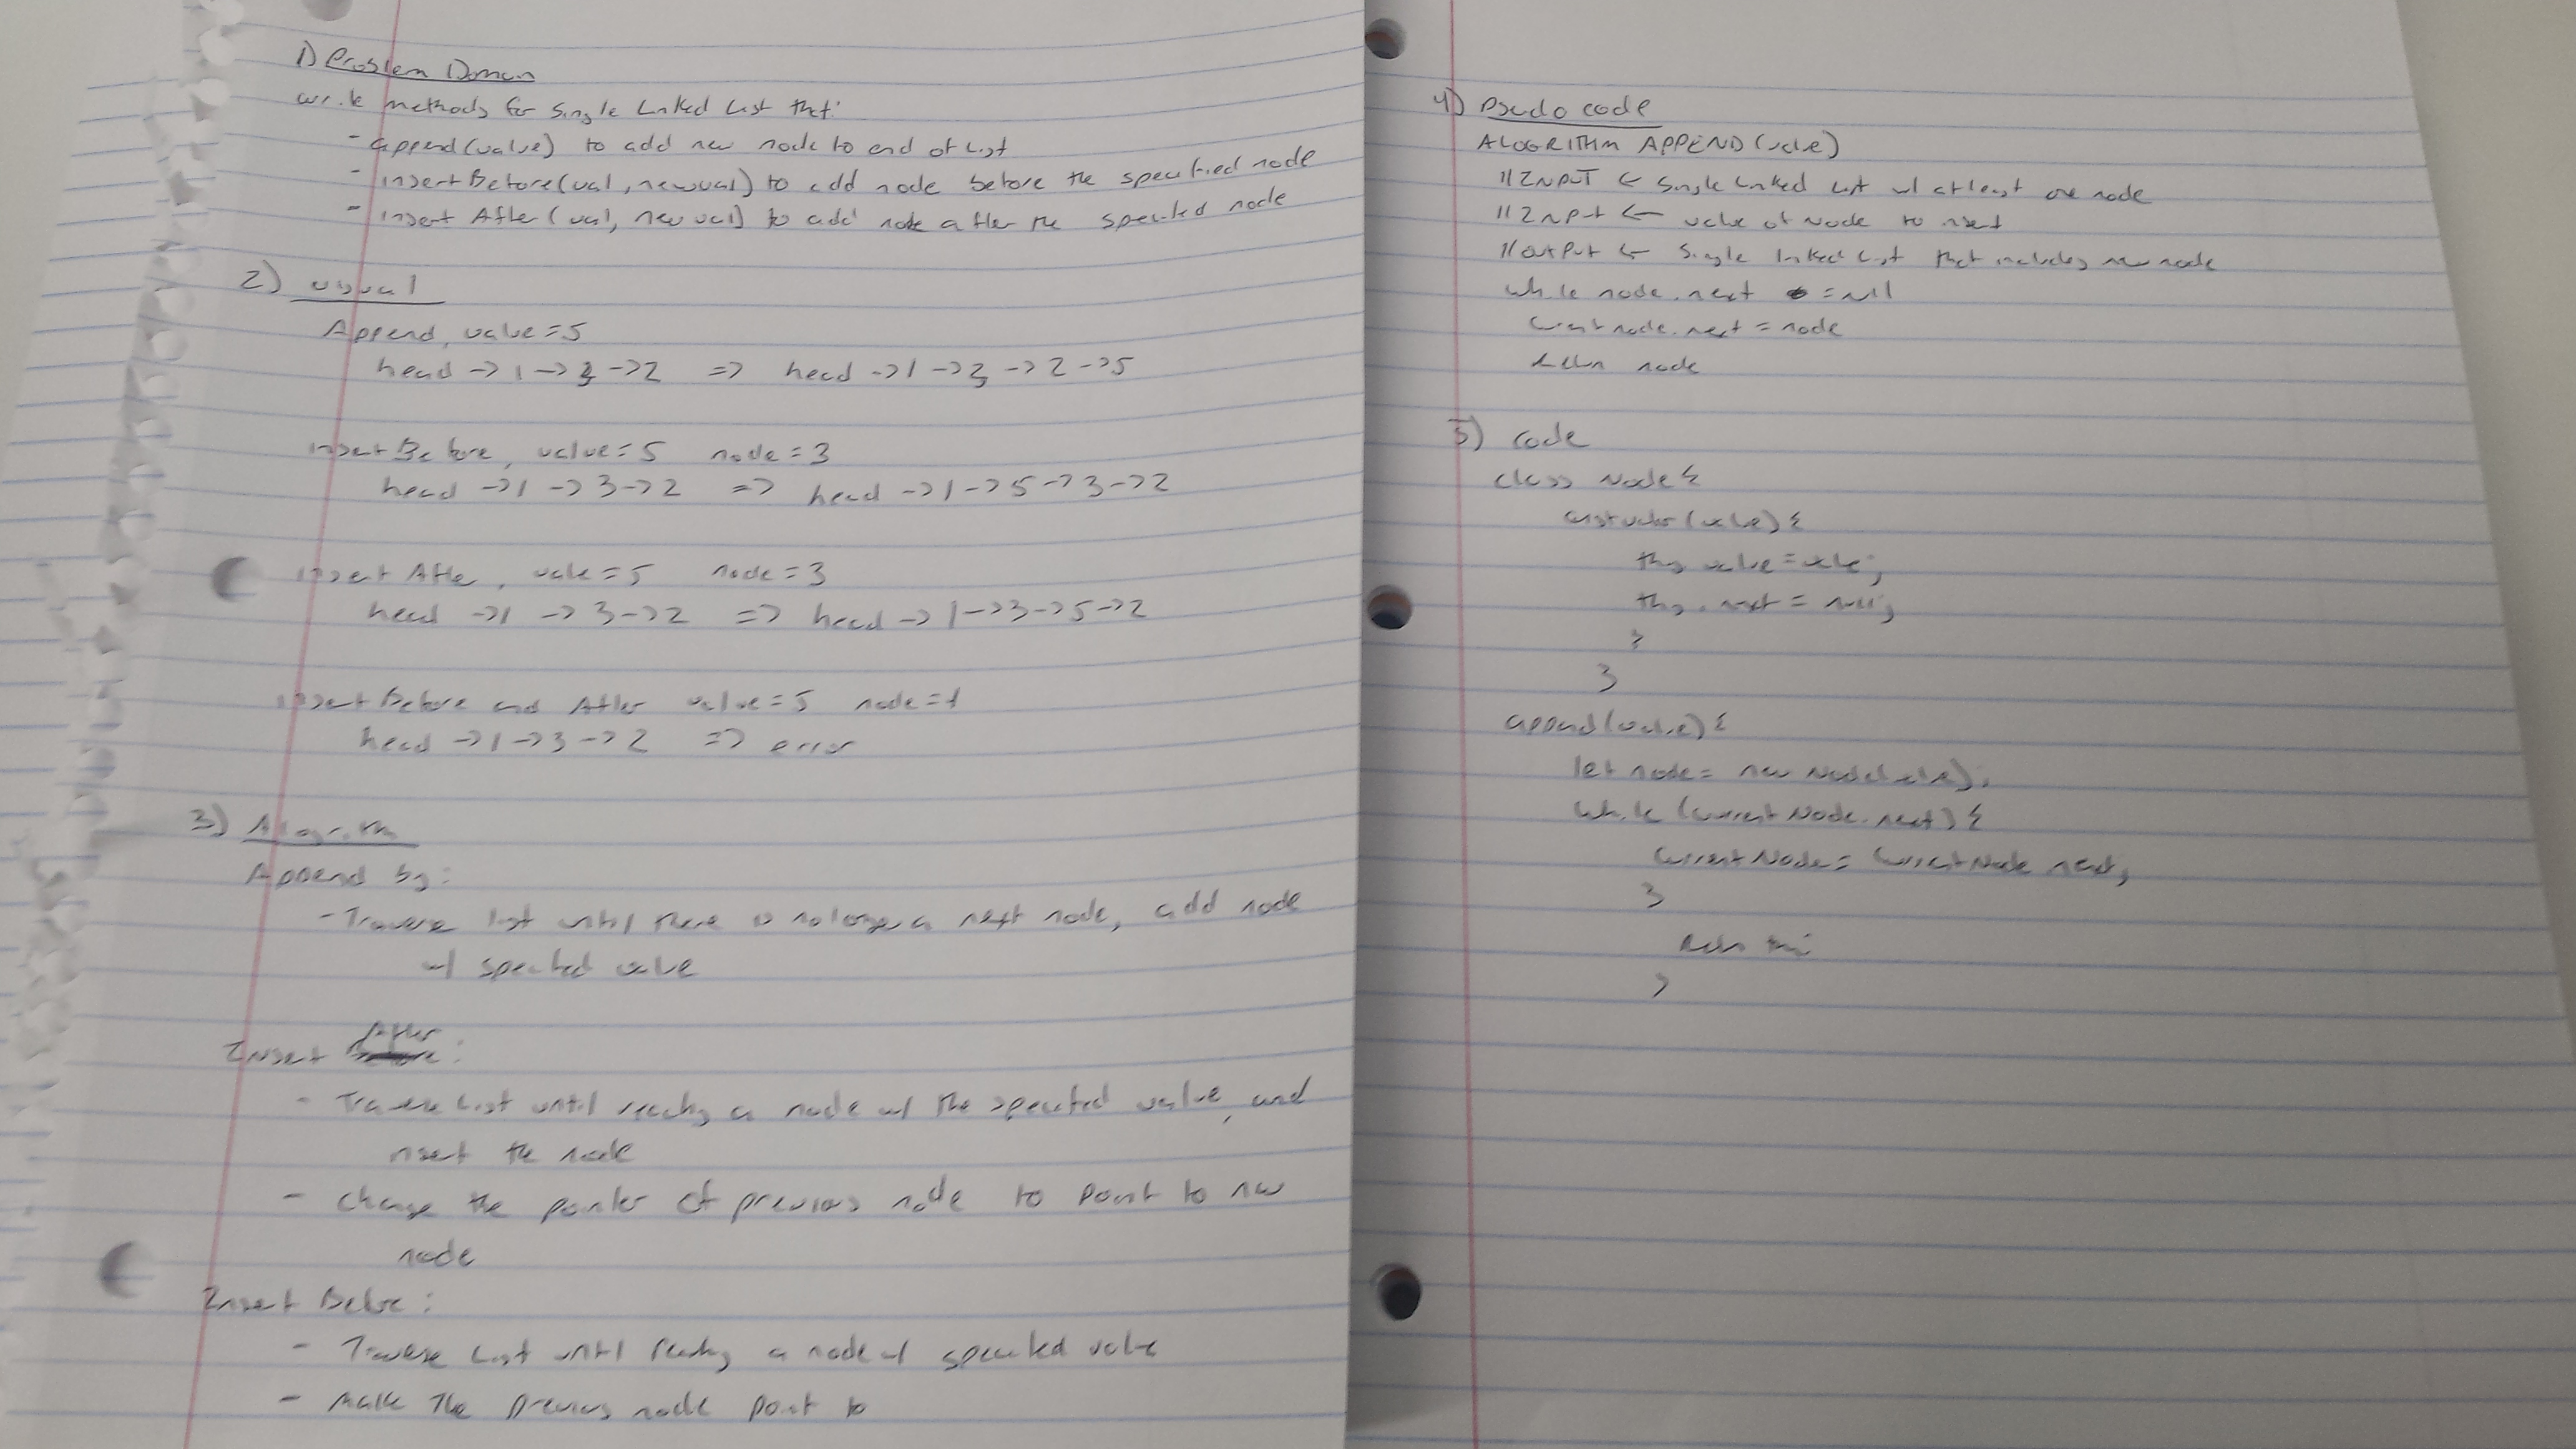 1) Problem Domain
write methods for Single Linked List that:
- append(value) to add new node to end of List
- insertBefore(val, newval) to add node before the specified node
- insert After(val, newval) to add node after the specified node
2) visual
Append, value=5
head -> 1 -> 3 -> 2 => head -> 1 -> 3 -> 2 -> 5
insertBefore, value=5 node=3
head -> 1 -> 3 -> 2 => head -> 1 -> 5 -> 3 -> 2
insert After, value=5 node=3
head -> 1 -> 3 -> 2 => head -> 1 -> 3 -> 5 -> 2
insert Before and After value=5 node=
head -> 1 -> 3 -> 2 => error
3) Algorithm
Append by:
- Traverse list until there is no longer a next node, add node
w/ specified value
Insert After:
- Traverse List until reaching a node w/ the specified value, and
insert the node
- change the pointer of previous node to point to new
node
Insert Before:
- Traverse List until reaching a node w/ specified value
- Make The previous node point to
4) Psudo code
ALOGRITHM APPEND(value)
// INPUT <- Single Linked List w/ at least one node
// INPUT <- value of Node to insert
// OUTPUT <- Single linked List that includes new node
while node.next = null
current node.next = node
return node
5) code
class Node{
constructor(value){
this.value = value;
this.next = null;
}
}
append(value){
let node = new Node(value);
while (currentNode.next) {
currentNode = currentNode.next;
}
return this;
}